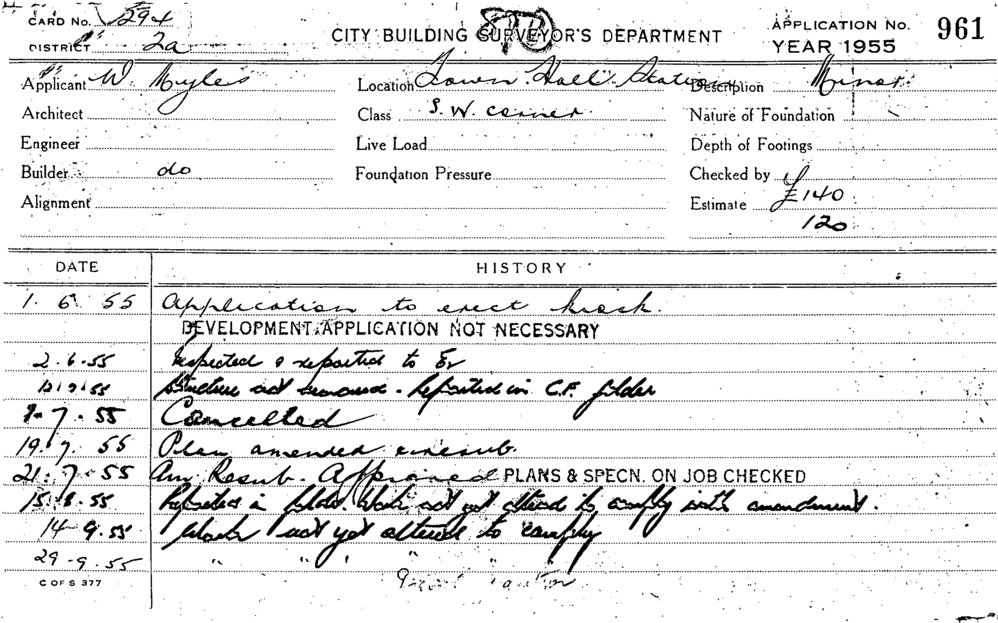 CARD No. 294
DISTRICT 2a
CITY BUILDING SURVEYOR'S DEPARTMENT
APPLICATION No. 961
YEAR 1955
Applicant W. Myles Location Town Hall Station Description Minor
Architect Class S. W. corner. Nature of Foundation
Engineer Live Load Depth of Footings
Builder do Foundation Pressure Checked by
Alignment Estimate £140
120
DATE HISTORY
1. 6. 55 Application to erect kiosk.
DEVELOPMENT APPLICATION NOT NECESSARY
2.6.55 Inspected & reported to
7.55 Structure not removed - Reported in C.F. folder
7. 55 Cancelled
19. 7. 55 Plan amended
21. 7. 55 Resub. Approved PLANS & SPECN. ON JOB CHECKED
15.8.55 Reported in folder. Work not yet altered to comply with amendment.
14 9.55 Work not yet altered to comply
29-9.55 " " "
C OF S 377